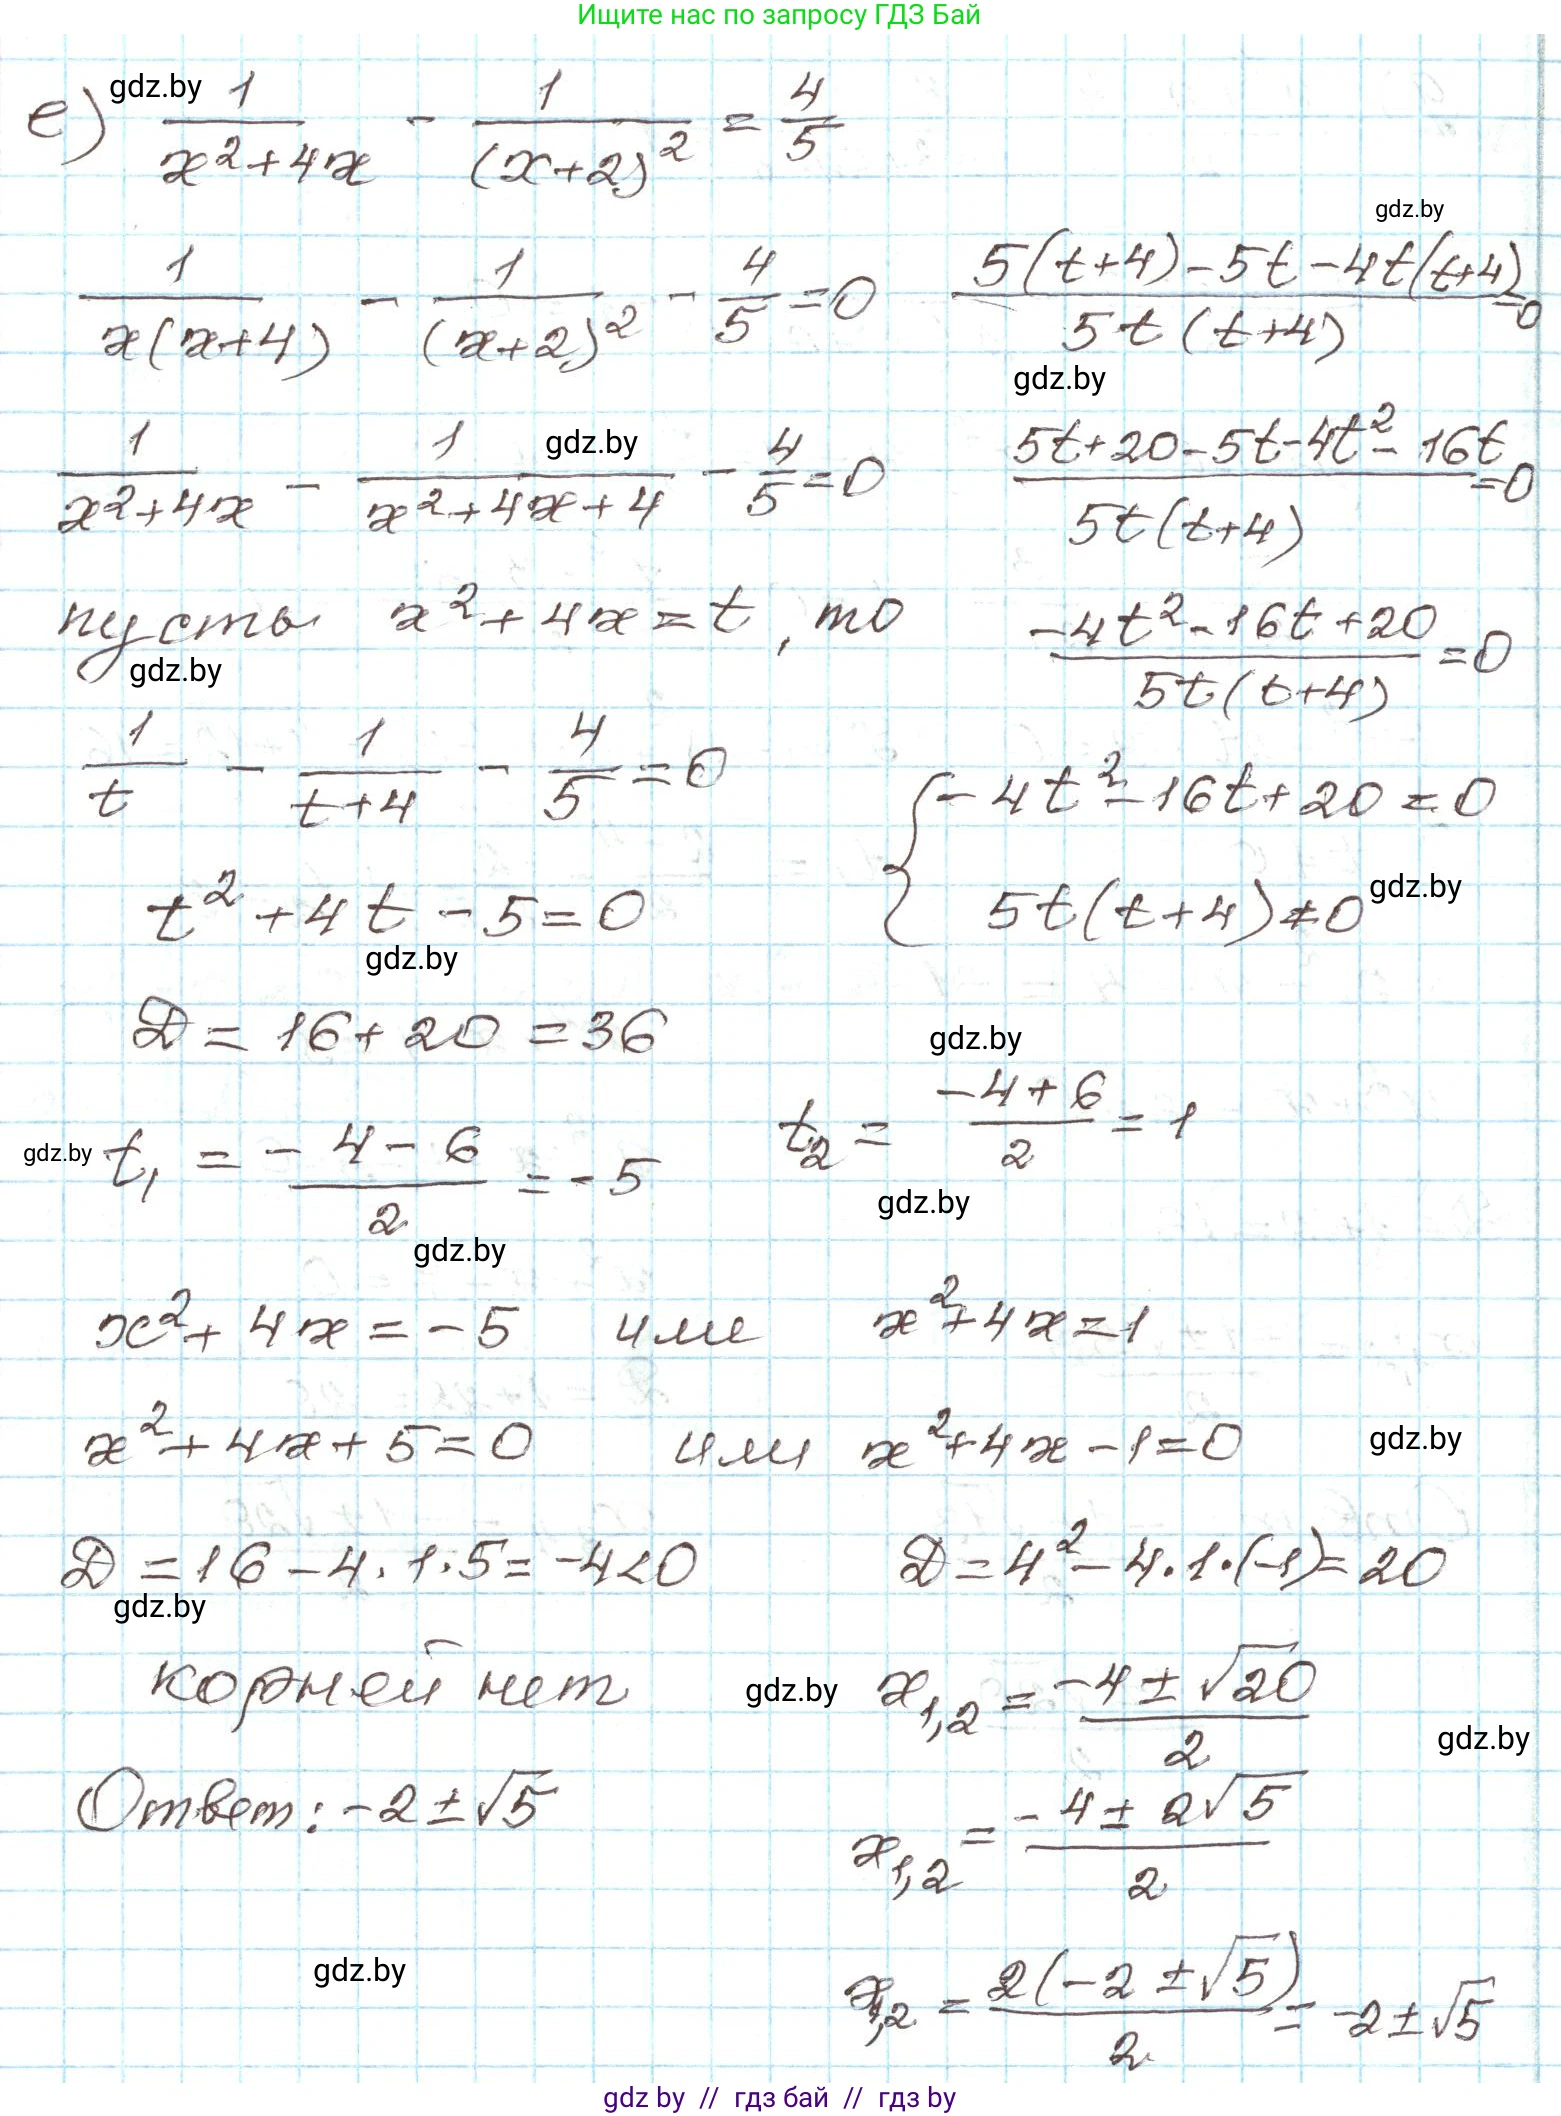 Ищите нас по запросу ГДЗ Бай
gdz.by
е) 1/(x²+4x) - 1/(x+2)² = 4/5
gdz.by
1/(x(x+4)) - 1/(x+2)² - 4/5 = 0
(5(t+4)-5t-4t(t+4))/(5t(t+4)) = 0
gdz.by
1/(x²+4x) - 1/(x²+4x+4) - 4/5 = 0
gdz.by
(5t+20-5t-4t²-16t)/(5t(t+4)) = 0
пусть x²+4x=t, то
gdz.by
(-4t²-16t+20)/(5t(t+4)) = 0
1/t - 1/(t+4) - 4/5 = 0
{ -4t²-16t+20=0
5t(t+4)≠0
gdz.by
t²+4t-5=0
gdz.by
D = 16+20 = 36
gdz.by
gdz.by
t₁ = (-4-6)/2 = -5
t₂ = (-4+6)/2 = 1
gdz.by
gdz.by
x²+4x=-5 или x²+4x=1
x²+4x+5=0 или x²+4x-1=0
gdz.by
D=16-4·1·5=-4<0
D=4²-4·1·(-1)=20
gdz.by
корней нет
gdz.by
x₁,₂ = (-4±√20)/2
gdz.by
Ответ: -2±√5
x₁,₂ = (-4±2√5)/2
gdz.by
x₁,₂ = (2(-2±√5))/2 = -2±√5
gdz by // гдз бай // гдз by